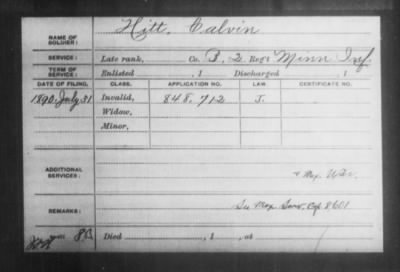 NAME OF SOLDIER: Hitt, Calvin
SERVICE: Late rank, Co. B, 2 Reg't Minn Inf.
TERM OF SERVICE: Enlisted , 1 Discharged , 1
DATE OF FILING. CLASS. APPLICATION NO. LAW. CERTIFICATE NO.
1890. July 31 Invalid, 848.712 J.
Widow,
Minor,
ADDITIONAL SERVICES: & Mex. War.
REMARKS: See Mex Surv. Ctf 8601
Died , 1 , at